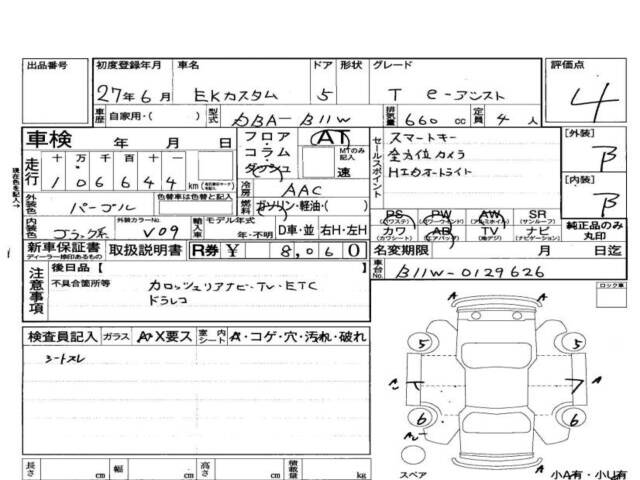 出品番号
初度登録年月 車名 ドア 形状 グレード 評価点
27年6月 EKカスタム 5 T e-アシスト 4
車歴 自家用・( ) 型式 DBA-B11W 排気量 660 cc 定員 4 人
車検 年 月 日
フロア コラム ダッシュ AT MTのみ記入 速
セールスポイント
スマートキー
全方位カメラ
HIDオートライト
[外装] B
[内装] B
現在色を記入→
走行 十 万 千 百 十 一
1 0 6 6 4 4 km
冷房 AAC
外装色 パープル 色替車は色替と記入
燃料 ガソリン・軽油・( )
内装色 ブラック系 外装カラーNo. V09
輸入車 モデル年式 年・不明 D車・並 右H・左H
PS (パワステ) PW (パワーウインド) AW (アルミホイル) SR (サンルーフ)
カワ (カワシート) エアB (エアバック) TV (地デジ) ナビ (ナビゲーション)
純正品のみ丸印
新車保証書 ディーラー捺印あるもの 取扱説明書 R券 ¥ 8,060
名変期限 月 日迄
車台No. B11W-0129626
注意事項
後日品【 】
不具合箇所等 カロッツェリアナビ・TV・ETC
ドラレコ
ロック車
検査員記入 ガラス A・X要ス 室内シート A・コゲ・穴・汚れ・破れ
シートスレ
A
5 5
A
A
6 6
A
A
スペア
小A有・小U有
長さ cm 幅 cm 高さ cm 積載量 kg